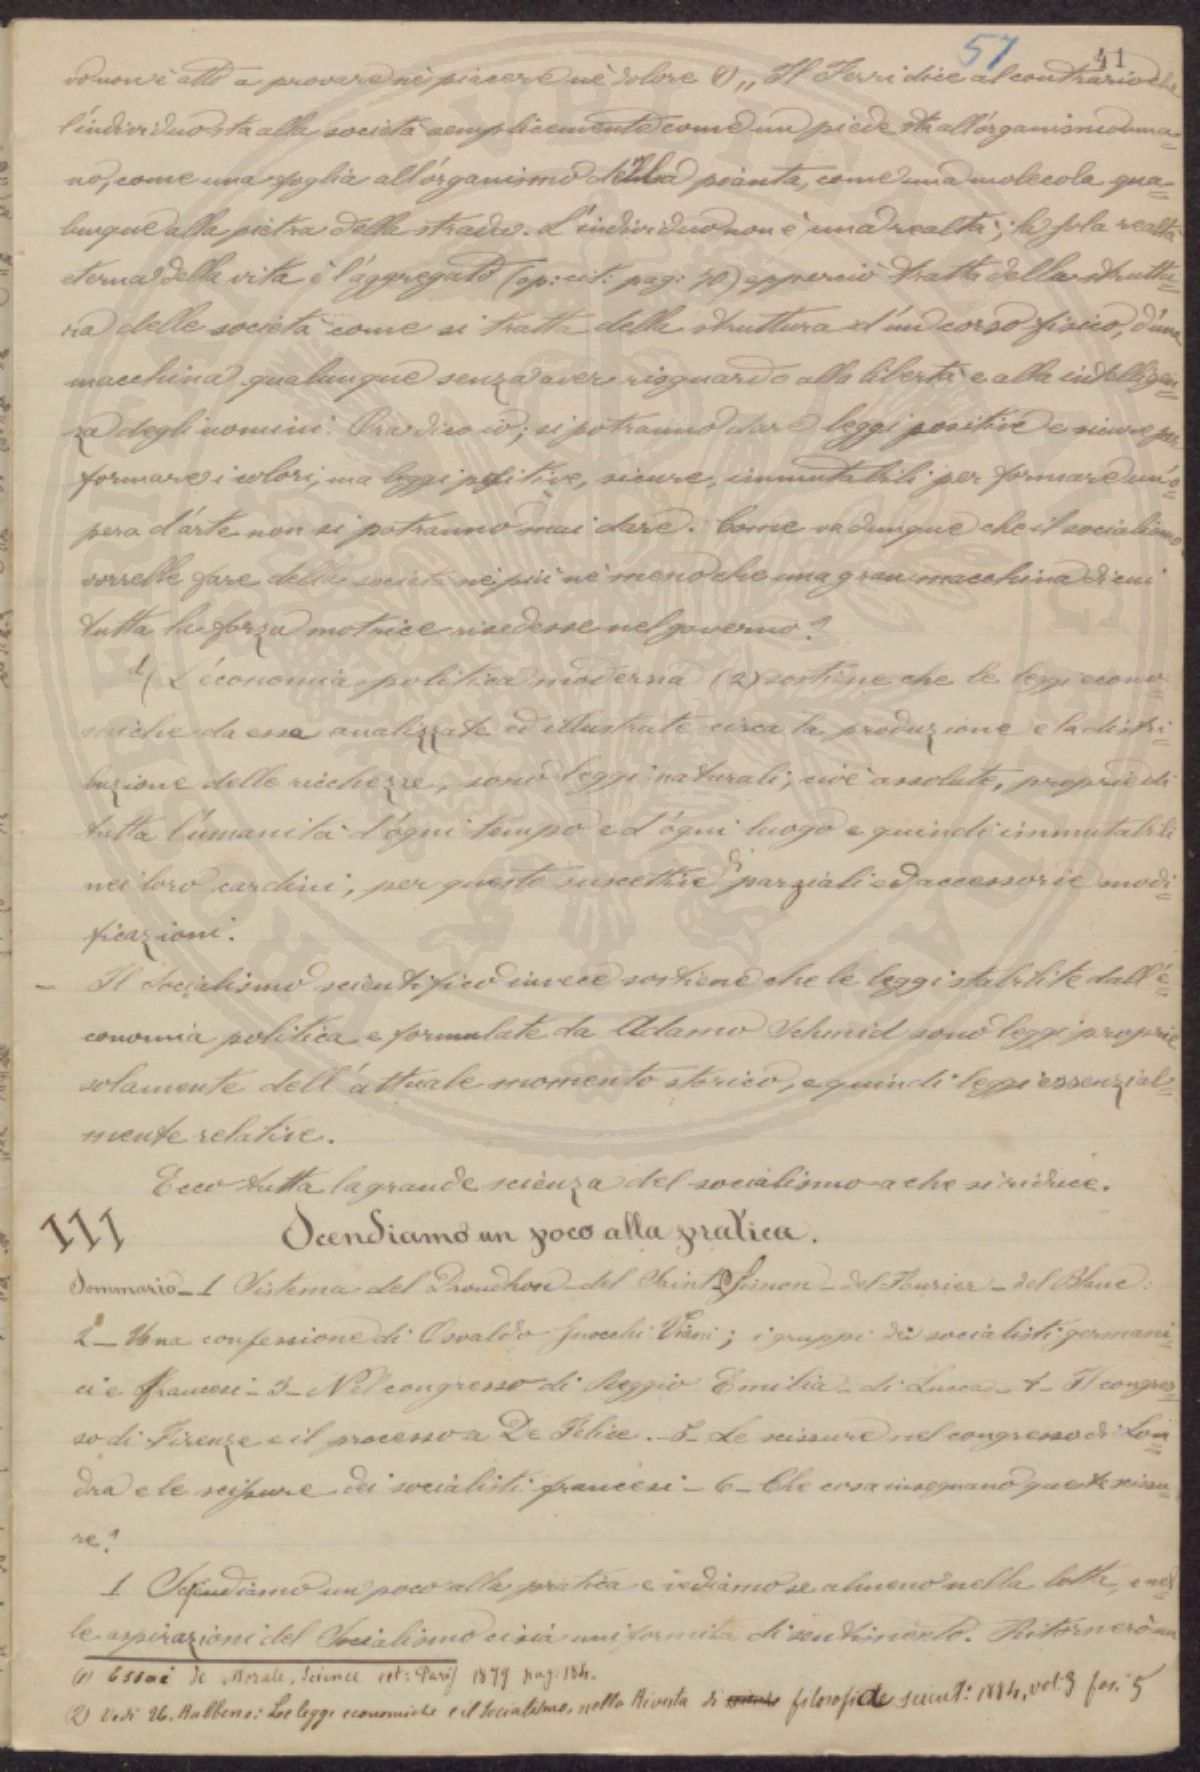 57 41
vo non è atto a provare nè piacere nè dolore (1) „ Il Ferri dice al contrario che
l'individuo sta alla società semplicemente come un piede sta all'organismo uma=
no, come una foglia all'organismo della pianta, come una molecola qua=
lunque alla pietra della strada. L'individuo non è una realtà; la sola realtà
eterna della vita è l'aggregato (op: cit: pag: 70) epperciò tratta della struttu=
ra delle società come si tratta della struttura d'un corso fisico, d'una
macchina qualunque senza aver risguardo alla libertà e alla intelligen=
za degli uomini. Ora dico io; si potranno dare leggi positive e sicure per
formare i colori, ma leggi positive, sicure, immutabili per formare un'o=
pera d'arte non si potranno mai dare. Come va dunque che il socialismo
vorrebbe fare della società nè più nè meno che una gran macchina di cui
tutta la forza motrice risedesse nel governo?
d) L'economia politica moderna (2) sostiene che le leggi econo=
miche da essa analizzate ed illustrate circa la produzione e la distri=
buzione delle ricchezze, sono leggi naturali; cioè assolute, proprie di
tutta l'umanità d'ogni tempo e d'ogni luogo e quindi immutabili
nei loro cardini, per queste suscettive di parziali ed accessorie modi=
ficazioni.
– Il Socialismo scientifico invece sostiene che le leggi stabilite dall'e=
conomia politica e formulate da Adamo Schmid sono leggi proprie
solamente dell'attuale momento storico, e quindi leggi essenzial=
mente relative.
Ecco tutta la grande scienza del socialismo a che si riduce.
III Scendiamo un poco alla pratica.
Sommario – 1 Sistema del Proudhon – del Saint Simon – del Fourier – del Blanc:
2 – Una confessione di Osvaldo Gnocchi Viani; i gruppi dei socialisti germani=
ci e francesi – 3 – Nel congresso di Reggio Emilia – di Lucca – 4 – Il congres=
so di Firenze e il processo a De Felice. – 5 – Le scissure nel congresso di Lon=
dra e le scissure dei socialisti francesi – 6 – Che cosa insegnano queste scissu=
re?
1 Scendiamo un poco alla pratica e vediamo se almeno nella lotta, e nel=
le aspirazioni del Socialismo ci sia uniformità di sentimento. Ritornerò un
(1) Essai de Morale, Science ect: Paris 1879 pag: 184.
(2) Vedi U. Rabbeno: Le leggi economiche e il socialismo, nella Rivista di filosofia scient: 1884, vol: 3 fas. 5